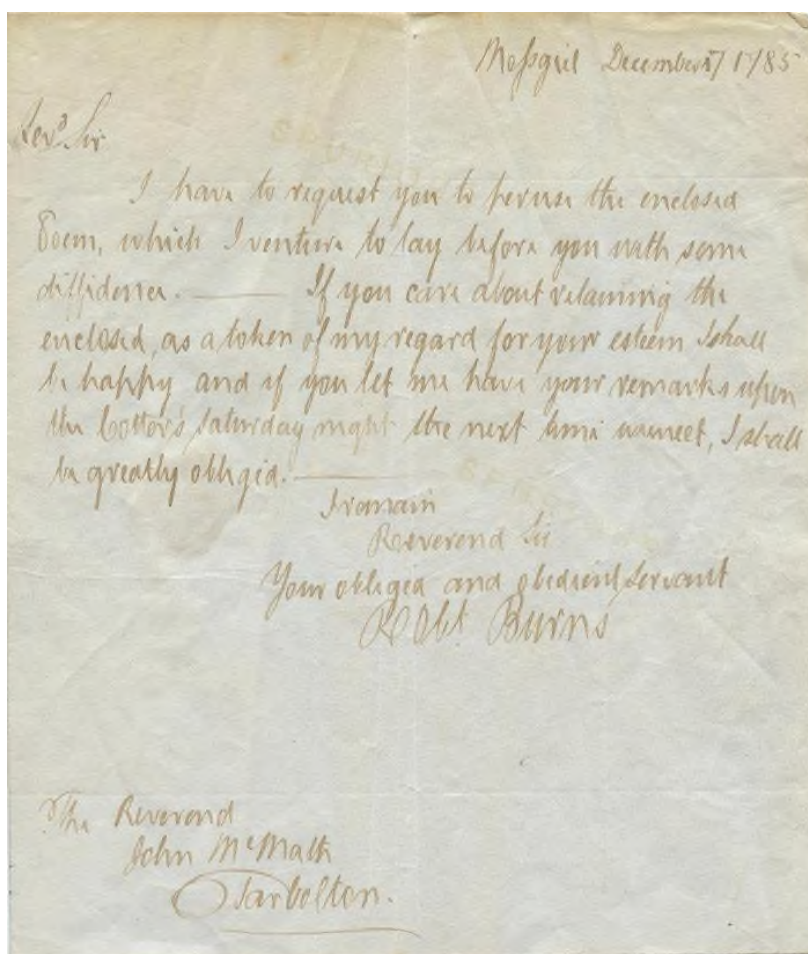 Mossgiel December 17 1785
Revd Sir
I have to request you to peruse the enclosed
Poem, which I venture to lay before you with some
diffidence. — If you care about retaining the
enclosed, as a token of my regard for your esteem I shall
be happy and if you let me have your remarks upon
the Cottor's Saturday night the next time we meet, I shall
be greatly obliged. —
I remain
Reverend Sir
Your obliged and obedient Servant
Robt Burns
The Reverend
John McMath
Tarbolton.